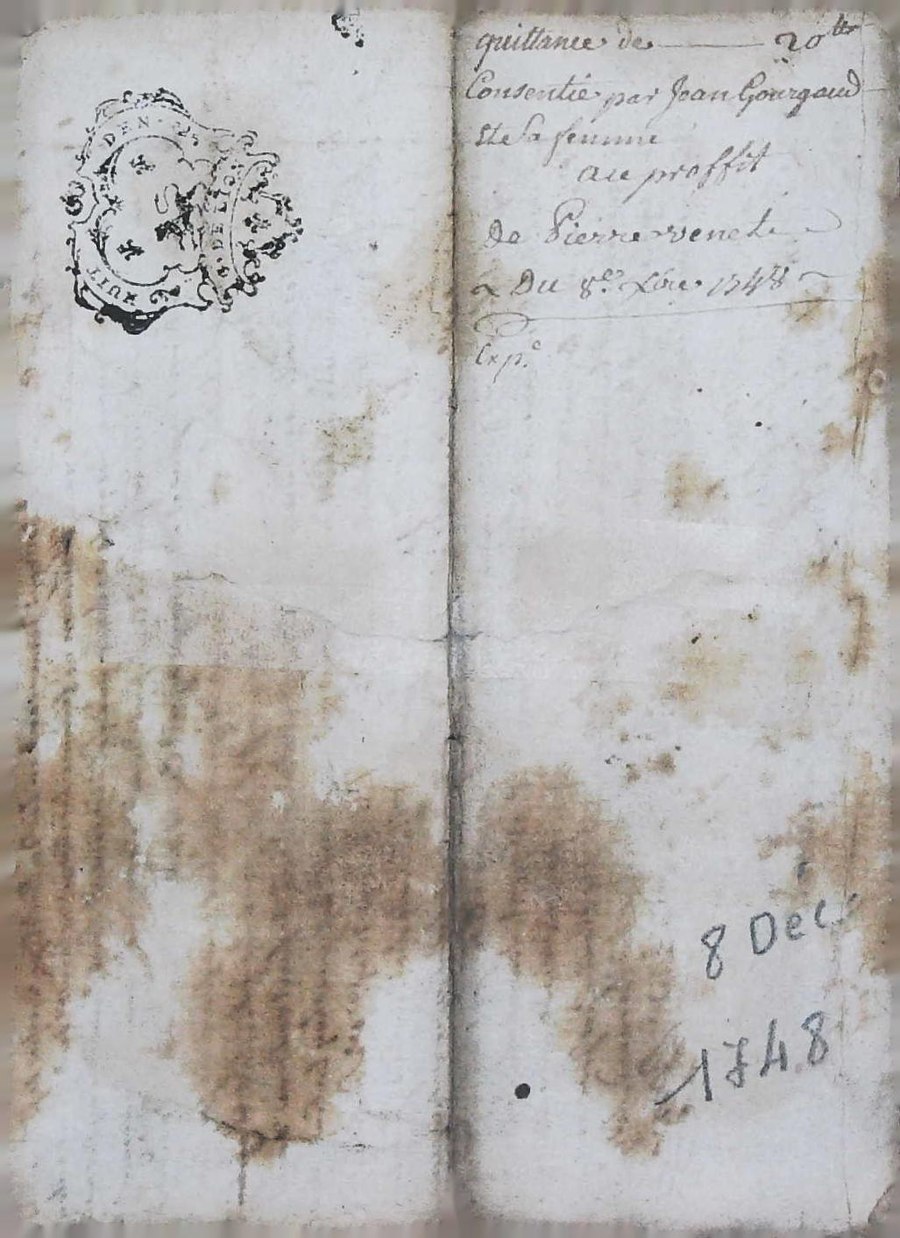 HUIT DEN.
G. DE LION
quittance de 20 ltt
Consentie par Jean Gourgaud
Et sa femme
au proffit
de Pierre venet
Du 8e. Xbre 1748
Exp.e
8 Dec.
1748